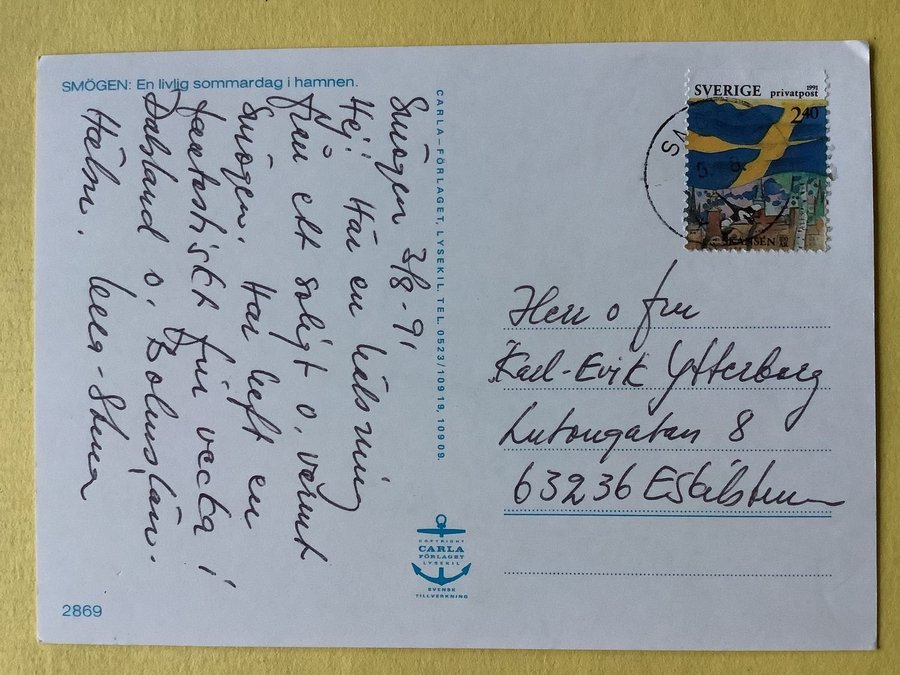 SMÖGEN: En livlig sommardag i hamnen.
Smögen 3/8-91
Hej! Här en hälsning
från ett soligt o. varmt
Smögen. Har haft en
fantastiskt fin vecka i
Dalsland o. Bohuslän.
Hälsn. -Stina
CARLA-FÖRLAGET, LYSEKIL. TEL. 0523/10919, 10909.
COPYRIGHT
CARLA
FÖRLAGET
LYSEKIL
SVENSK
TILLVERKNING
2869
SVERIGE 1991
privatpost
2.40
SKANSEN
Herr o fru
Karl-Erik Ytterborg
8
63236 Eskilstuna